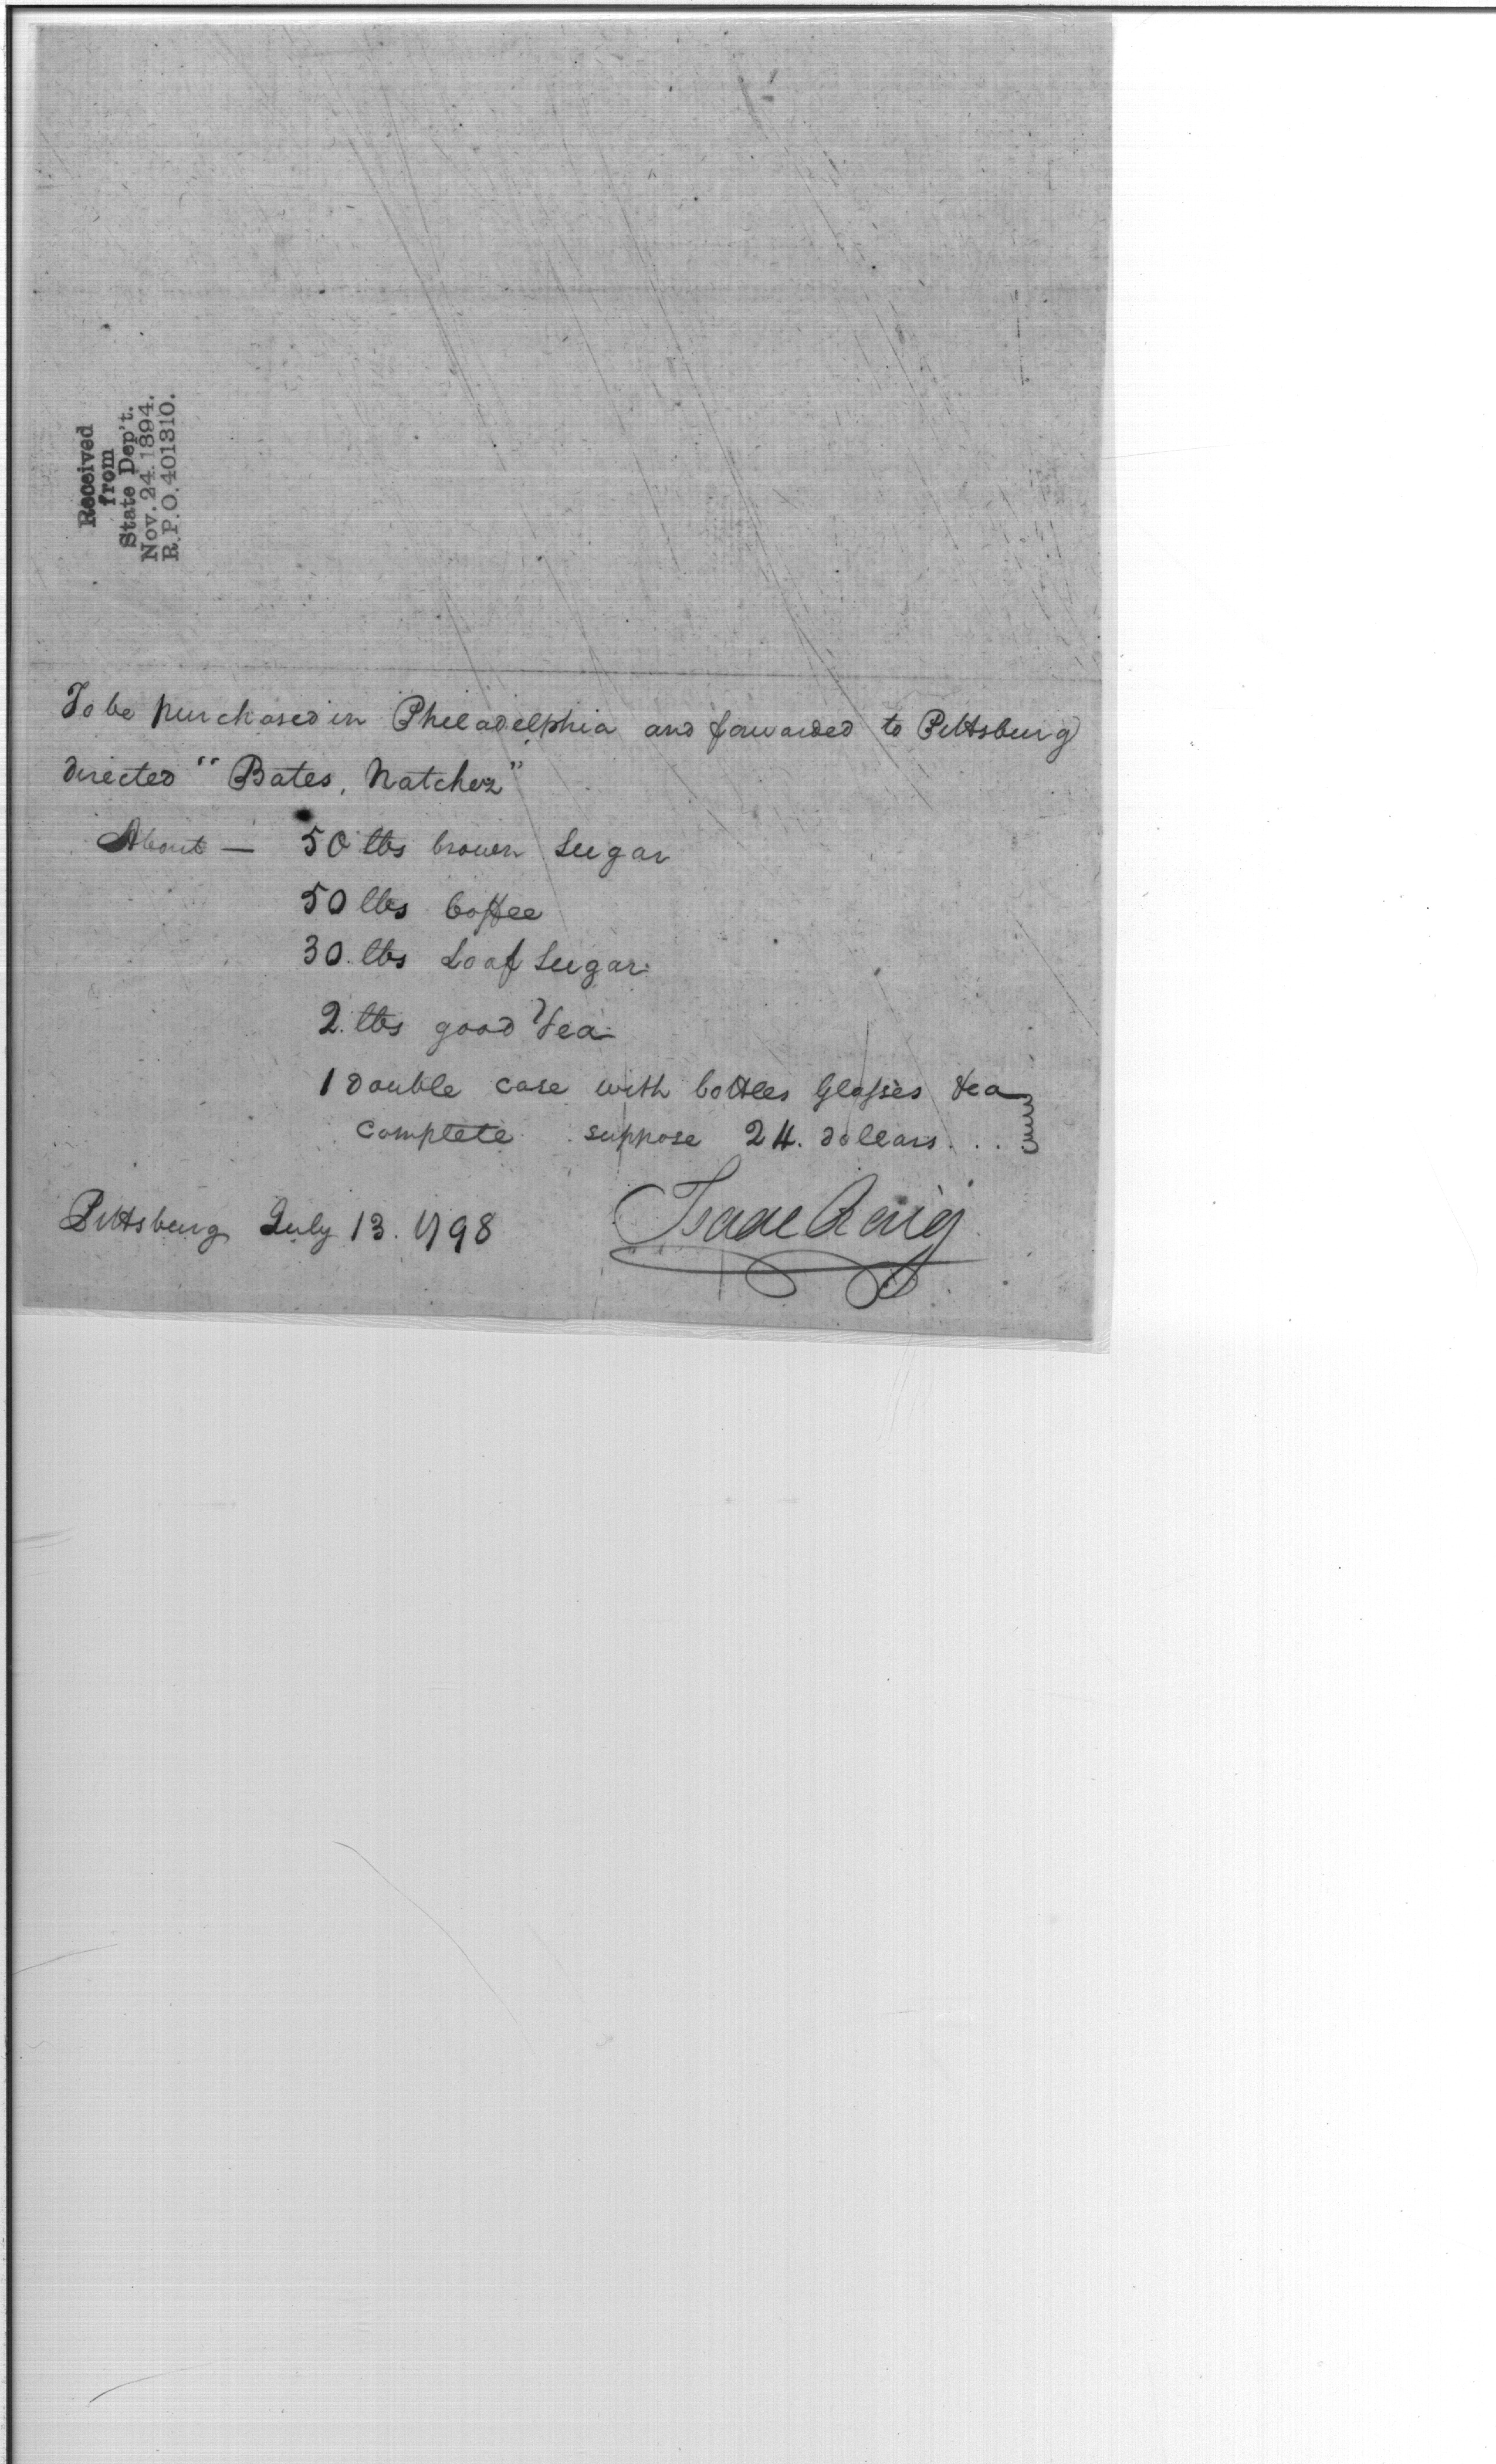 Received
from
State Dep't.
Nov. 24. 1894.
R.P.O. 401310.
To be purchased in Philadelphia and forwarded to Pittsburg
directed "Bates, Natchez"
About — 50 lbs brown Sugar
50 lbs Coffee
30. lbs Loaf Sugar
2. lbs good Tea
1 double case with bottles Glasses
complete suppose 24. dollars...
Pittsburg July 13. 1798 Isaac Craig